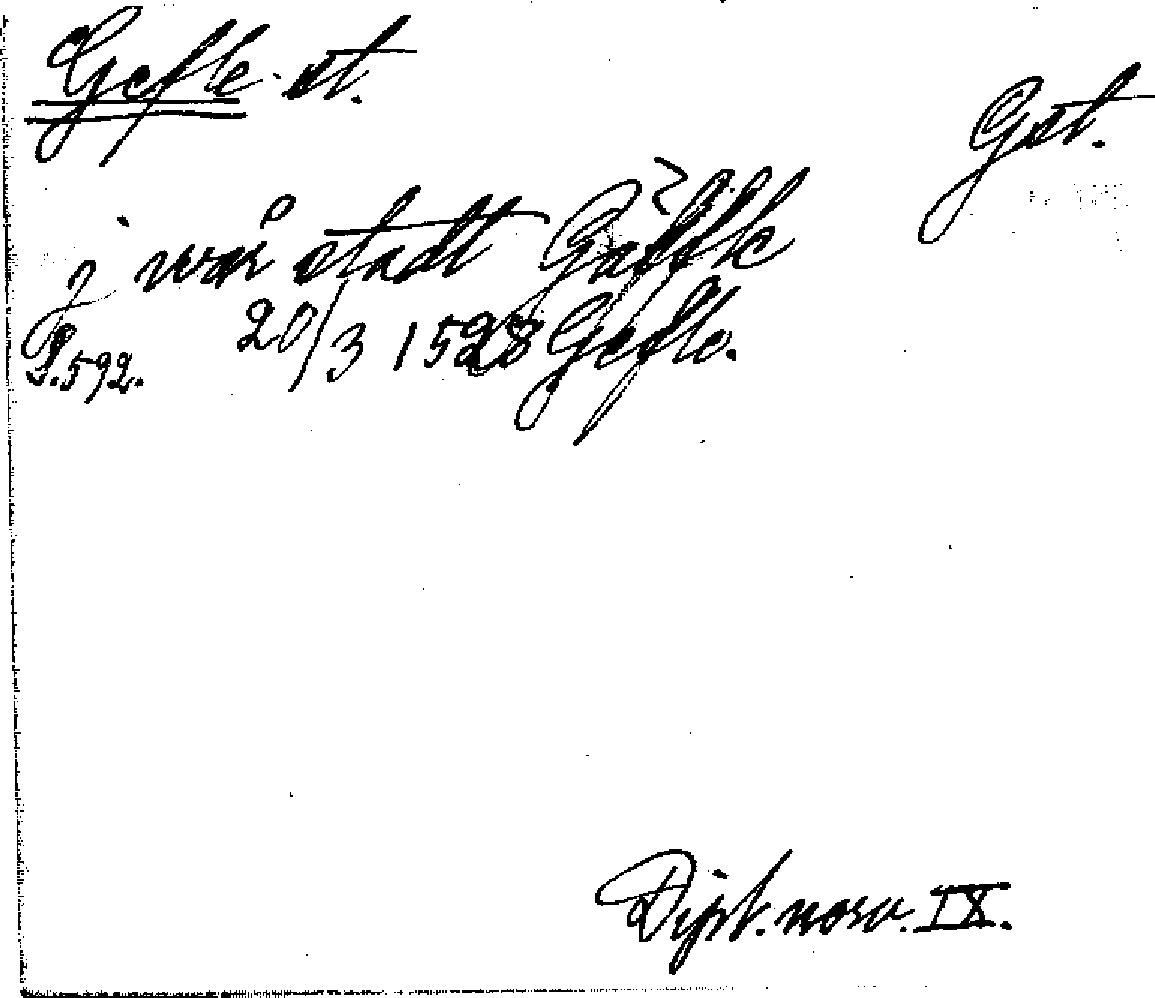 Gefle st.
Gst.
j wår stadt Gäffle
S. 592. 20/3 1528 Gefle.
Dipl. norv. IX.